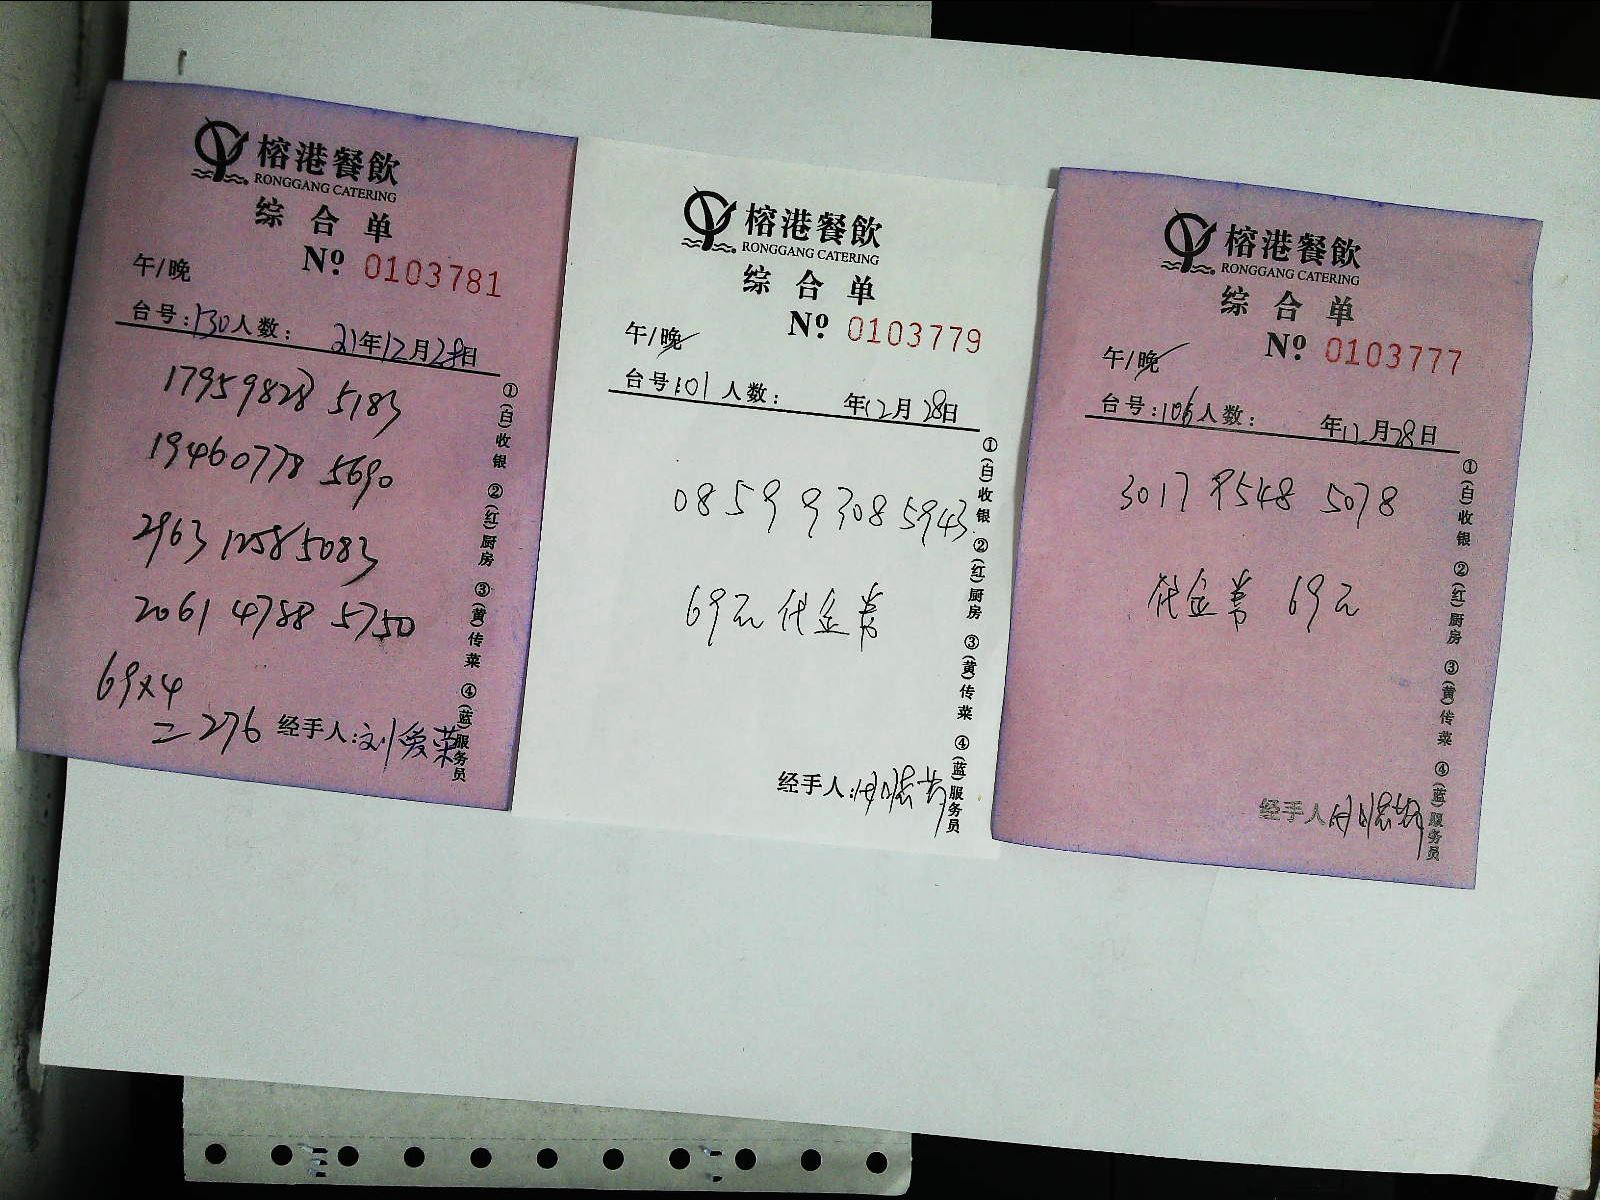 榕港餐飲
RONGGANG CATERING
综合单
午/晚
Nº 0103781
台号:130人数: 21年12月28日
17959828 5183
19460778 5690
2963 1258 5083
2061 4788 5750
69×4
=276
经手人:刘爱荣
①(白)收银 ②(红)厨房 ③(黄)传菜 ④(蓝)服务员
榕港餐飲
RONGGANG CATERING
综合单
午/晚
Nº 0103779
台号:101人数: 年12月28日
0859 9308 5943
69元代金券
经手人:
①(白)收银 ②(红)厨房 ③(黄)传菜 ④(蓝)服务员
榕港餐飲
RONGGANG CATERING
综合单
午/晚
Nº 0103777
台号:106人数: 年12月28日
3017 9548 5078
代金券 69元
经手人
①(白)收银 ②(红)厨房 ③(黄)传菜 ④(蓝)服务员